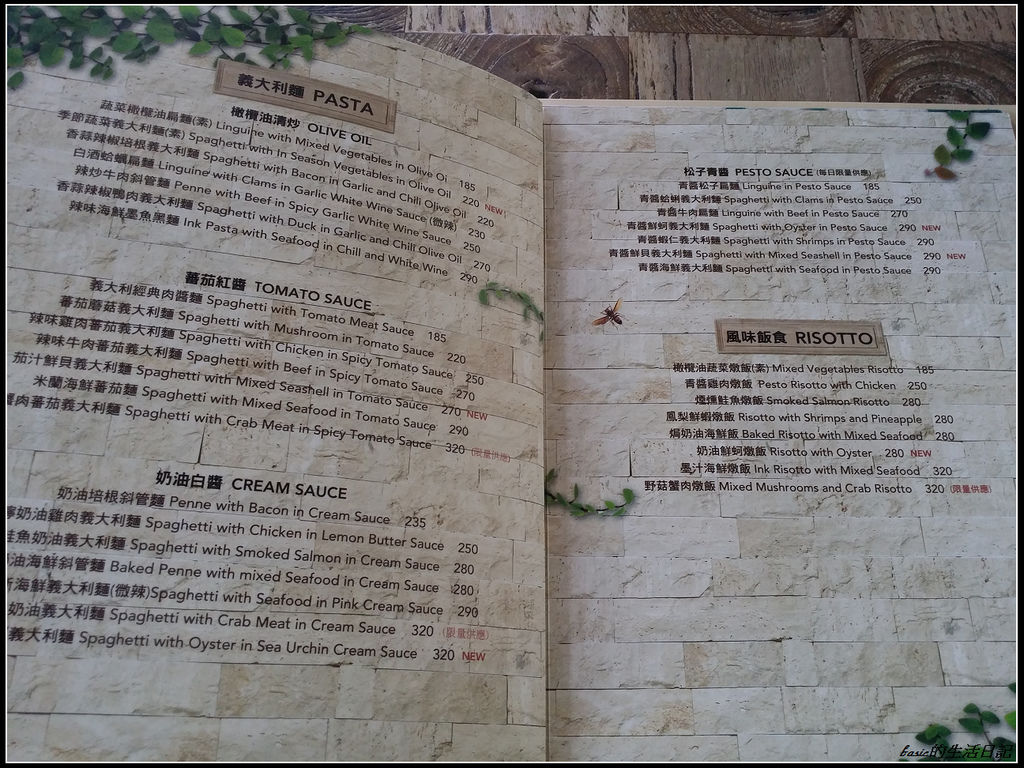 義大利麵 PASTA
橄欖油清炒 OLIVE OIL
蔬菜橄欖油扁麵(素) Linguine with Mixed Vegetables in Olive Oi 185
季節蔬菜義大利麵(素) Spaghetti with In Season Vegetables in Olive Oil 220 NEW
香蒜辣椒培根義大利麵 Spaghetti with Bacon in Garlic and Chili Olive Oil 220
白酒蛤蠣扁麵 Linguine with Clams in Garlic White Wine Sauce (微辣) 230
辣炒牛肉斜管麵 Penne with Beef in Spicy Garlic White Wine Sauce 250
香蒜辣椒鴨肉義大利麵 Spaghetti with Duck in Garlic and Chill Olive Oil 270
辣味海鮮墨魚黑麵 Ink Pasta with Seafood in Chill and White Wine 290
蕃茄紅醬 TOMATO SAUCE
義大利經典肉醬麵 Spaghetti with Tomato Meat Sauce 185
蕃茄蘑菇義大利麵 Spaghetti with Mushroom in Tomato Sauce 220
辣味雞肉蕃茄義大利麵 Spaghetti with Chicken in Spicy Tomato Sauce 250
辣味牛肉蕃茄義大利麵 Spaghetti with Beef in Spicy Tomato Sauce 270
茄汁鮮貝義大利麵 Spaghetti with Mixed Seashell in Tomato Sauce 270 NEW
米蘭海鮮蕃茄麵 Spaghetti with Mixed Seafood in Tomato Sauce 290
蟹肉蕃茄義大利麵 Spaghetti with Crab Meat in Spicy Tomato Sauce 320 (限量供應)
奶油白醬 CREAM SAUCE
奶油培根斜管麵 Penne with Bacon in Cream Sauce 235
檸奶油雞肉義大利麵 Spaghetti with Chicken in Lemon Butter Sauce 250
鮭魚奶油義大利麵 Spaghetti with Smoked Salmon in Cream Sauce 280
油海鮮斜管麵 Baked Penne with mixed Seafood in Cream Sauce 280
海鮮義大利麵(微辣)Spaghetti with Seafood in Pink Cream Sauce 290
奶油義大利麵 Spaghetti with Crab Meat in Cream Sauce 320 (限量供應)
義大利麵 Spaghetti with Oyster in Sea Urchin Cream Sauce 320 NEW
松子青醬 PESTO SAUCE (每日限量供應)
青醬松子扁麵 Linguine in Pesto Sauce 185
青醬蛤蜊義大利麵 Spaghetti with Clams in Pesto Sauce 250
青醬牛肉扁麵 Linguine with Beef in Pesto Sauce 270
青醬鮮蚵義大利麵 Spaghetti with Oyster in Pesto Sauce 290 NEW
青醬蝦仁義大利麵 Spaghetti with Shrimps in Pesto Sauce 290
青醬鮮貝義大利麵 Spaghetti with Mixed Seashell in Pesto Sauce 290 NEW
青醬海鮮義大利麵 Spaghetti with Seafood in Pesto Sauce 290
風味飯食 RISOTTO
橄欖油蔬菜燉飯(素) Mixed Vegetables Risotto 185
青醬雞肉燉飯 Pesto Risotto with Chicken 250
煙燻鮭魚燉飯 Smoked Salmon Risotto 280
鳳梨鮮蝦燉飯 Risotto with Shrimps and Pineapple 280
焗奶油海鮮飯 Baked Risotto with Mixed Seafood 280
奶油鮮蚵燉飯 Risotto with Oyster 280 NEW
墨汁海鮮燉飯 Ink Risotto with Mixed Seafood 320
野菇蟹肉燉飯 Mixed Mushrooms and Crab Risotto 320 (限量供應)
basic的生活日記